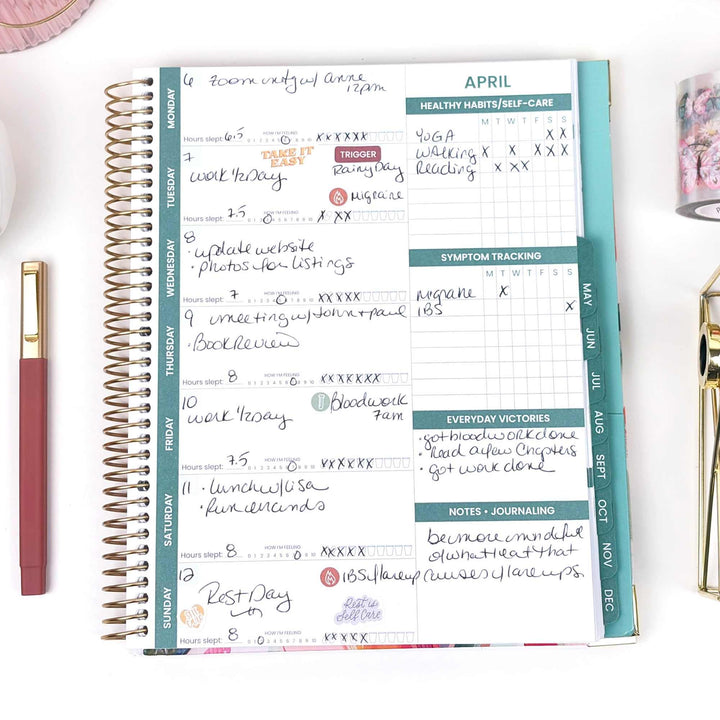 MONDAY
6 Zoom mtg w/ Anne
12pm
Hours slept: 6.5 HOW I'M FEELING 0 1 2 3 4 5 6 7 8 9 10 XXXXXX
TUESDAY
7
TAKE IT
EASY
TRIGGER
Rainy Day
Work 1/2 Day
Migraine
Hours slept: 7.5 HOW I'M FEELING 0 1 2 3 4 5 6 7 8 9 10 X XX
WEDNESDAY
8
• update website
• photos for listings
Hours slept: 7 HOW I'M FEELING 0 1 2 3 4 5 6 7 8 9 10 XXXXXX
THURSDAY
9 meeting w/ John + paul
• Book Review
Hours slept: 8 HOW I'M FEELING 0 1 2 3 4 5 6 7 8 9 10 XXXXXXX
FRIDAY
10
Bloodwork
7am
Work 1/2 Day
Hours slept: 7.5 HOW I'M FEELING 0 1 2 3 4 5 6 7 8 9 10 XXXXXX
SATURDAY
11 • Lunch w/ Lisa
• Run errands
Hours slept: 8 HOW I'M FEELING 0 1 2 3 4 5 6 7 8 9 10 XXXXX
SUNDAY
12
IBS flareup
Rest Day
Rest is
Self Care
Hours slept: 8 HOW I'M FEELING 0 1 2 3 4 5 6 7 8 9 10 XXXXX
APRIL
HEALTHY HABITS/SELF-CARE
M T W T F S S
YOGA X X
Walking X X X X X
Reading X X X
SYMPTOM TRACKING
M T W T F S S
Migraine X
IBS X
EVERYDAY VICTORIES
• got bloodwork done
• Read a few Chapters
• got work done
NOTES • JOURNALING
be more mindful
of what I eat that
causes flareups.
MAY
JUN
JUL
AUG
SEPT
OCT
NOV
DEC